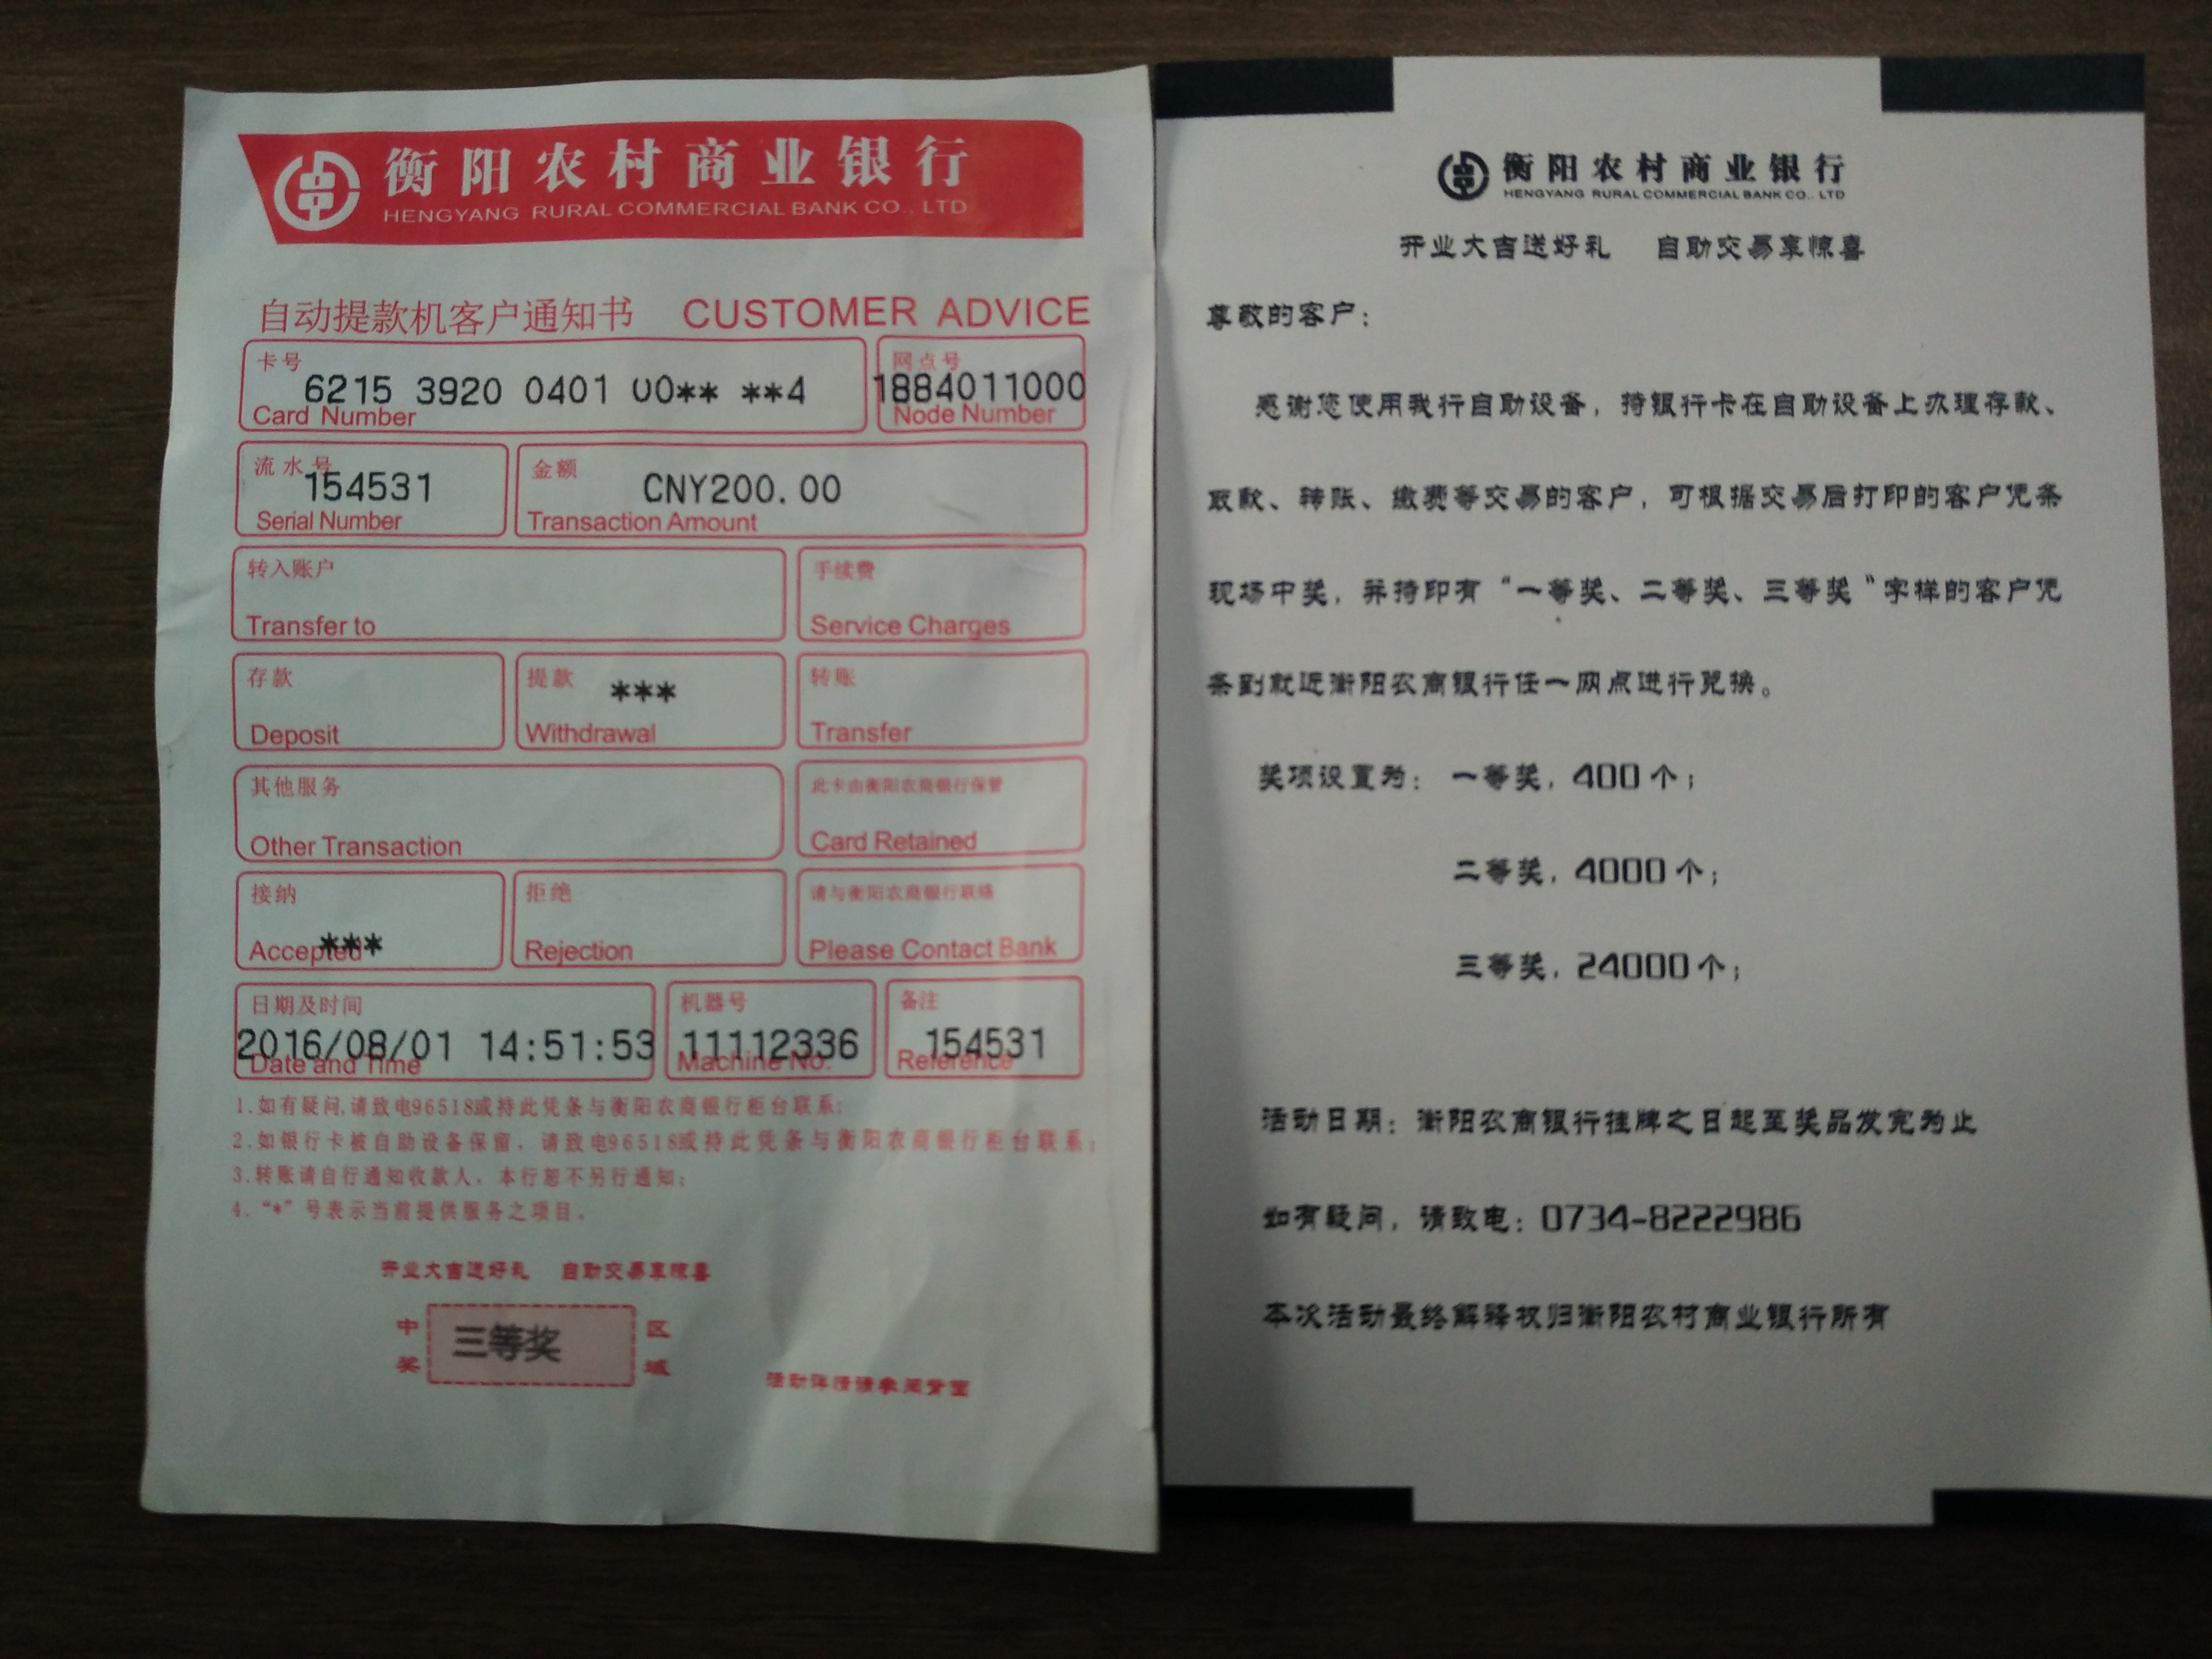 衡阳农村商业银行
HENGYANG RURAL COMMERCIAL BANK CO., LTD
自动提款机客户通知书 CUSTOMER ADVICE
卡号 网点号
6215 3920 0401 00** **4 1884011000
Card Number Node Number
流水号 金额
154531 CNY200.00
Serial Number Transaction Amount
转入账户 手续费
Transfer to Service Charges
存款 提款 *** 转账
Deposit Withdrawal Transfer
其他服务 此卡由衡阳农商银行保管
Other Transaction Card Retained
接纳 拒绝 请与衡阳农商银行联络
Accepted *** Rejection Please Contact Bank
日期及时间 机器号 备注
2016/08/01 14:51:53 11112336 154531
Date and Time Machine No. Reference
1.如有疑问,请致电96518或持此凭条与衡阳农商银行柜台联系;
2.如银行卡被自助设备保留,请致电96518或持此凭条与衡阳农商银行柜台联系;
3.转账请自行通知收款人,本行恕不另行通知;
4."*"号表示当前提供服务之项目。
开业大吉送好礼 自助交易享惊喜
中奖 三等奖 区域
活动详情请参阅背面
衡阳农村商业银行
HENGYANG RURAL COMMERCIAL BANK CO., LTD
开业大吉送好礼 自助交易享惊喜
尊敬的客户:
感谢您使用我行自助设备,持银行卡在自助设备上办理存款、
取款、转账、缴费等交易的客户,可根据交易后打印的客户凭条
现场中奖,并持印有“一等奖、二等奖、三等奖”字样的客户凭
条到就近衡阳农商银行任一网点进行兑换。
奖项设置为: 一等奖,400个;
二等奖,4000个;
三等奖,24000个;
活动日期:衡阳农商银行挂牌之日起至奖品发完为止
如有疑问,请致电:0734-8222986
本次活动最终解释权归衡阳农村商业银行所有